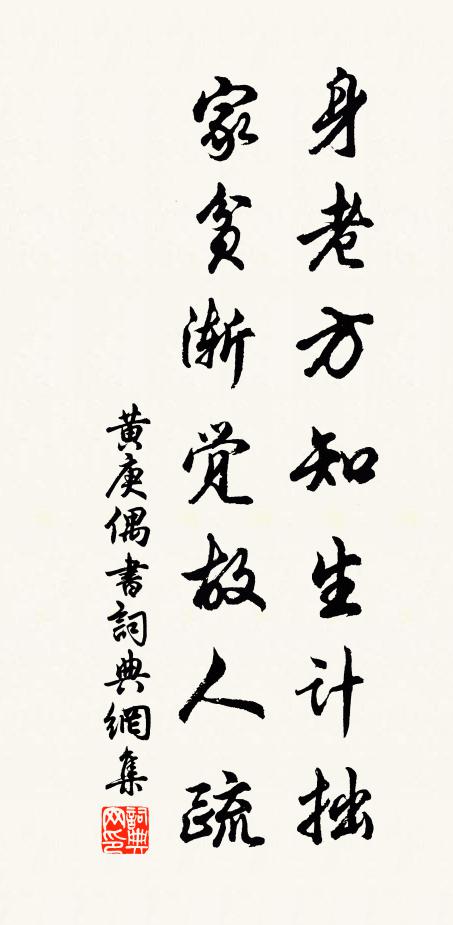 身老方知生计拙
家贫渐觉故人疏
黄庚偶书詞典網集
詞典网印